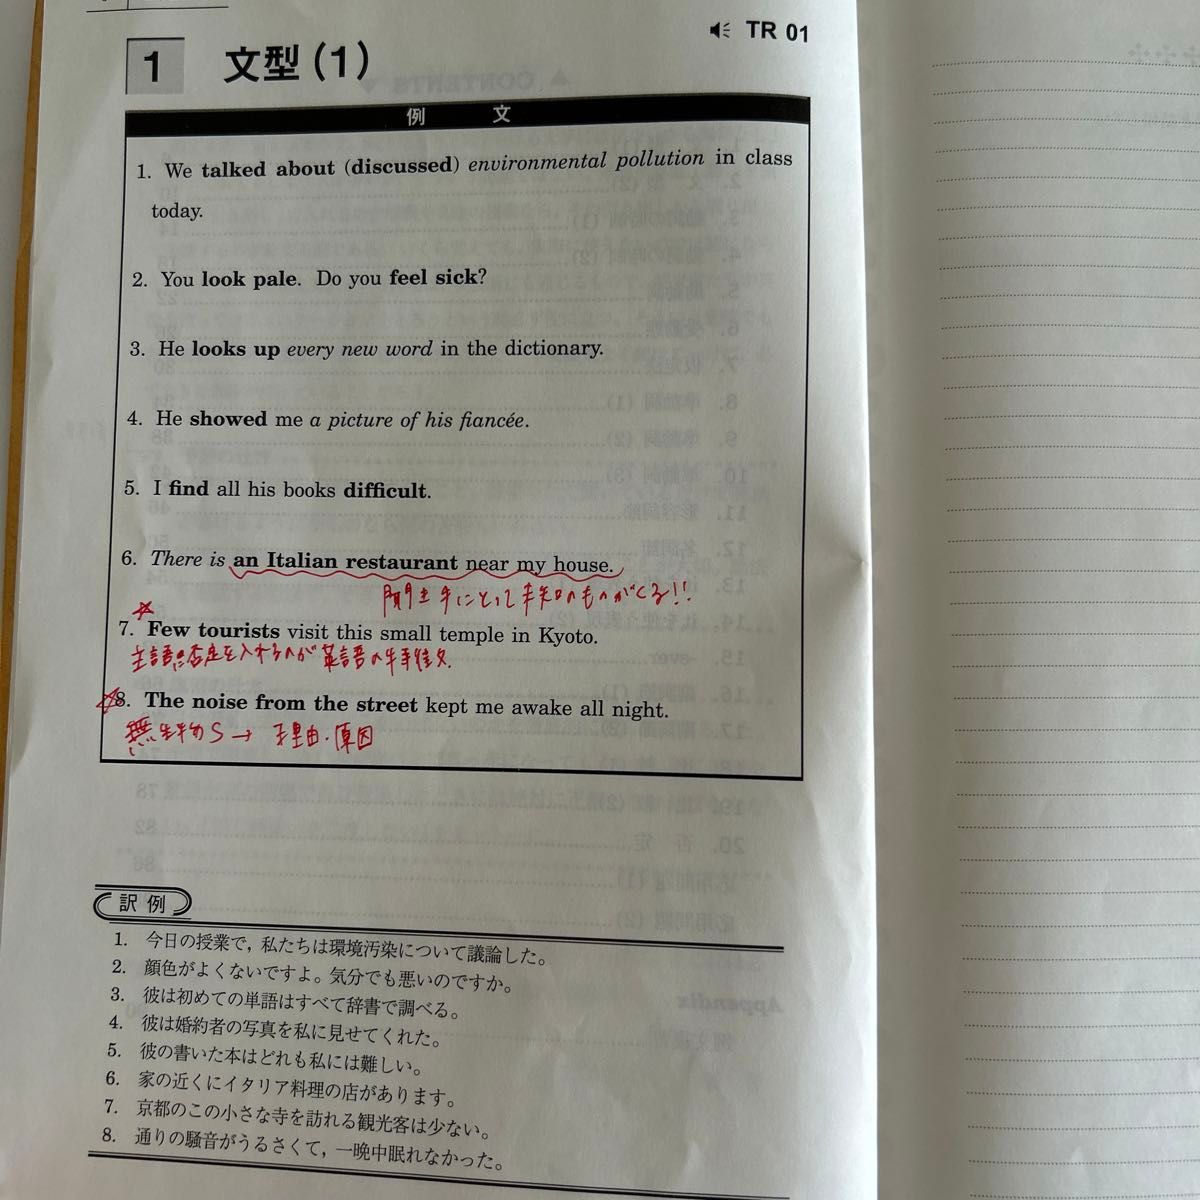 TR 01
1 文型(1)
例 文
1. We talked about (discussed) environmental pollution in class
today.
2. You look pale. Do you feel sick?
3. He looks up every new word in the dictionary.
4. He showed me a picture of his fiancée.
5. I find all his books difficult.
6. There is an Italian restaurant near my house.
聞き手にとって未知のものがくる!!
7. Few tourists visit this small temple in Kyoto.
主語に否定を入れるのが英語の
8. The noise from the street kept me awake all night.
無生物S→ 理由・原因
訳例
1. 今日の授業で，私たちは環境汚染について議論した。
2. 顔色がよくないですよ。気分でも悪いのですか。
3. 彼は初めての単語はすべて辞書で調べる。
4. 彼は婚約者の写真を私に見せてくれた。
5. 彼の書いた本はどれも私には難しい。
6. 家の近くにイタリア料理の店があります。
7. 京都のこの小さな寺を訪れる観光客は少ない。
8. 通りの騒音がうるさくて，一晩中眠れなかった。